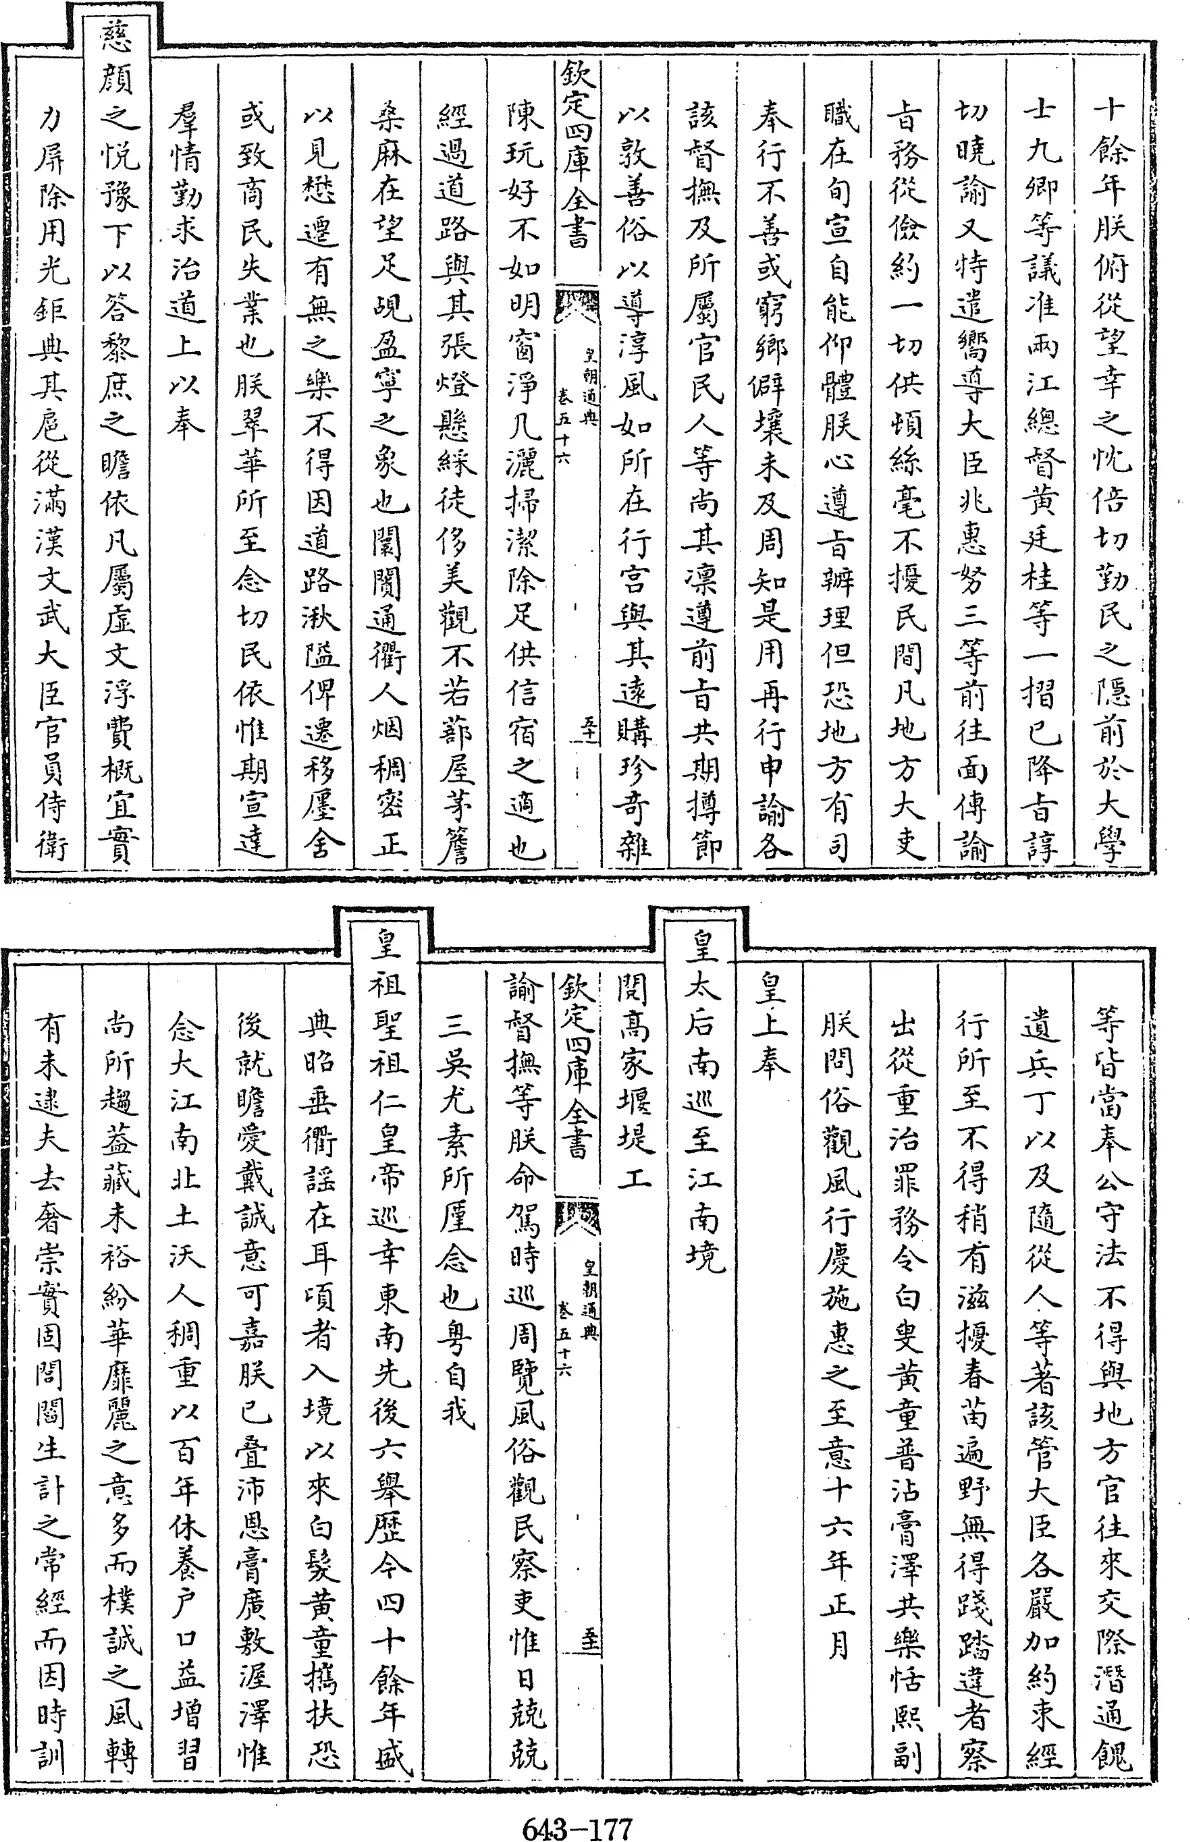 十餘年朕俯從望幸之忱倍切勤民之隱前於大學
士九卿等議准兩江總督黄廷桂等一摺已降㫖諄
切曉諭又特遣嚮導大臣兆惠努三等前往面傳諭
㫖務從儉約一切供頓絲毫不擾民間凡地方大吏
職在旬宣自能仰體朕心遵㫖辦理但恐地方有司
奉行不善或窮鄉僻壤未及周知是用再行申諭各
該督撫及所屬官民人等尚其凛遵前㫖共期撙節
以敦善俗以導淳風如所在行宫與其逺購珍奇雜
欽定四庫全書
皇朝通典
卷五十六
陳玩好不如明窗淨几灑掃潔除足供信宿之適也
經過道路與其張燈懸綵徒侈美觀不若蔀屋茅簷
桑麻在望足覘盈寧之象也闤闠通衢人烟稠密正
以見懋遷有無之樂不得因道路湫隘俾遷移廛舍
或致商民失業也朕翠華所至念切民依惟期宣達
羣情勤求治道上以奉
慈顔之悅豫下以答黎庶之瞻依凡屬虛文浮費概宜實
力屏除用光鉅典其扈從滿漢文武大臣官員侍衛
等皆當奉公守法不得與地方官往來交際潛通餽
遺兵丁以及隨從人等著該管大臣各嚴加約束經
行所至不得稍有滋擾春苗遍野無得踐踏違者察
出從重治罪務令白叟黄童普沾膏澤共樂恬熙副
朕問俗觀風行慶施惠之至意十六年正月
皇上奉
皇太后南巡至江南境
閱髙家堰堤工
欽定四庫全書
皇朝通典
卷五十六
諭督撫等朕命駕時巡周覽風俗觀民察吏惟日兢兢
三吴尤素所厪念也粤自我
皇祖聖祖仁皇帝巡幸東南先後六舉歷今四十餘年盛
典昭垂衢謡在耳頃者入境以來白髮黄童攜扶恐
後就瞻愛戴誠意可嘉朕已疊沛恩膏廣敷渥澤惟
念大江南北土沃人稠重以百年休養户口益增習
尚所趨葢藏未裕紛華靡麗之意多而樸誠之風轉
有未逮夫去奢崇實固閭閻生計之常經而因時訓
643-177